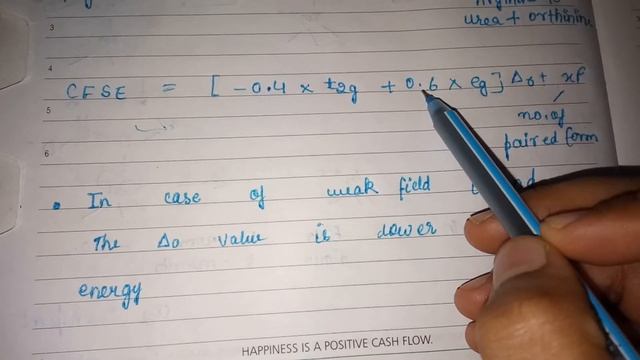 urea + orthinine
3
4
CFSE = [ -0.4 × t2g + 0.6 × eg ] Δo + xP
5
no. of
paired form
6
• In case of weak field
The Δo value is lower
energy
HAPPINESS IS A POSITIVE CASH FLOW.